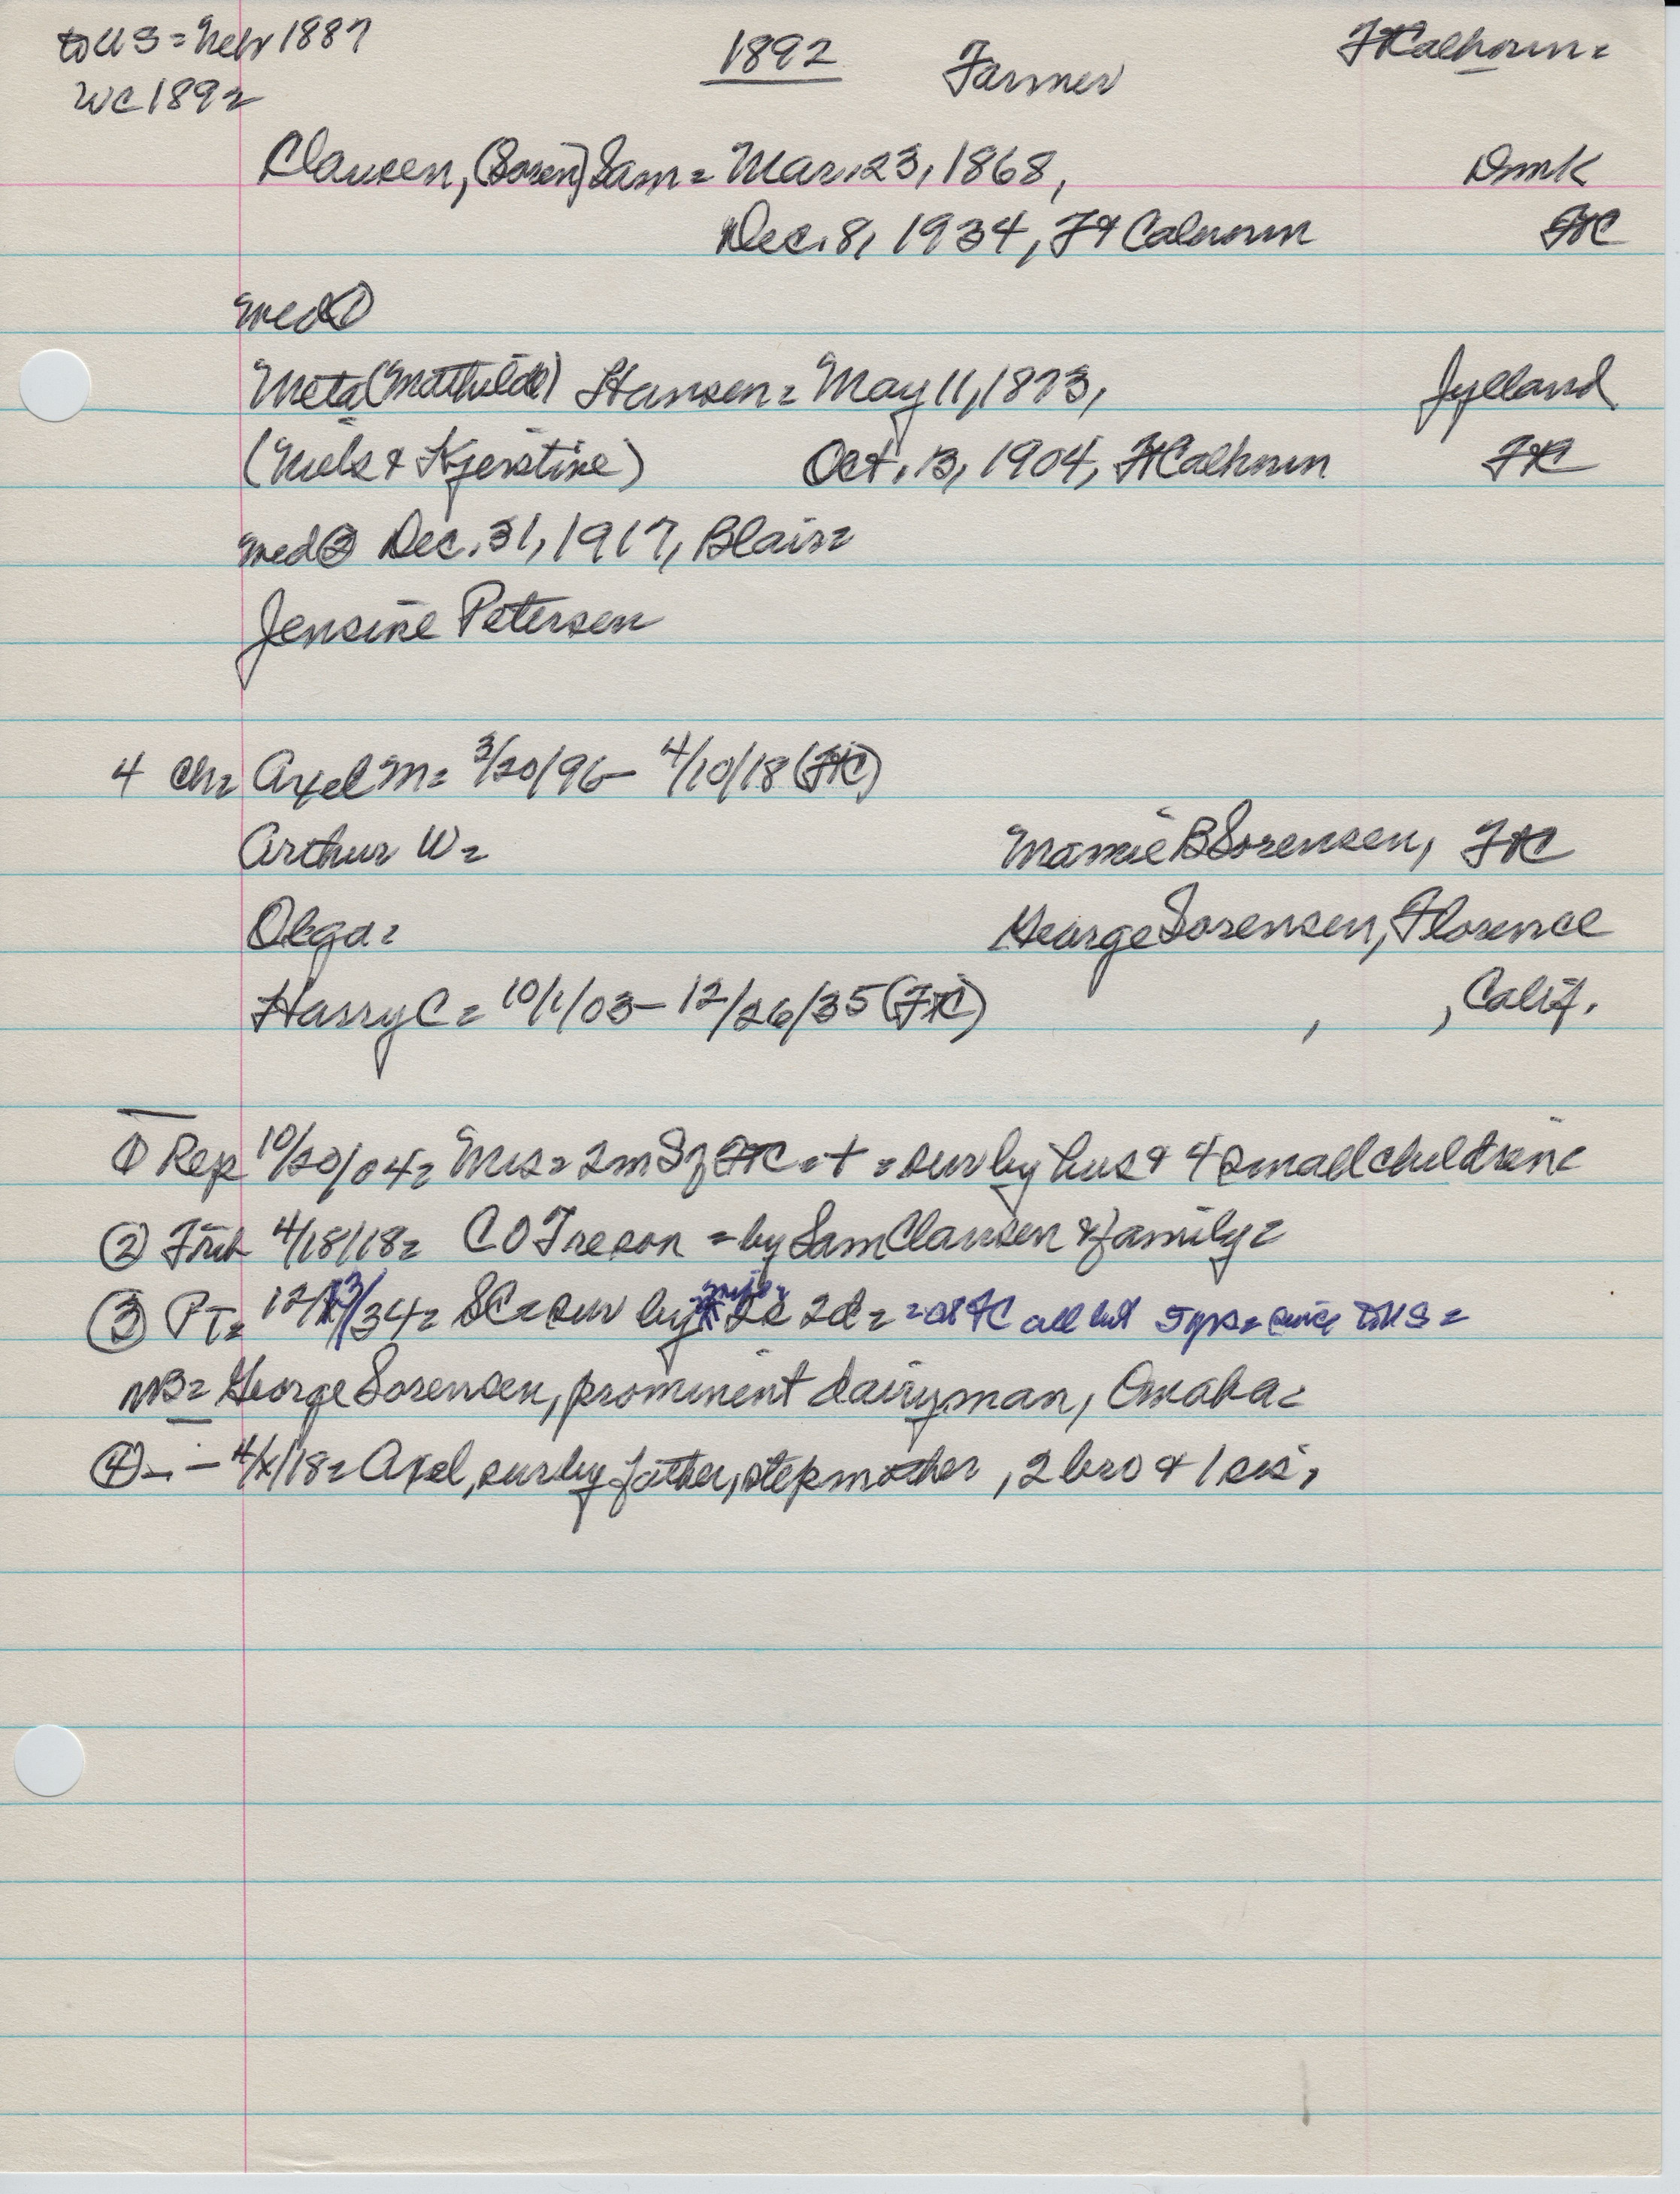 to US = Nebr 1887
1892 Farmer Ft Calhoun =
WC 1892
Clausen, (Soren) Sam = Mar. 23, 1868, Dmk
Dec. 8, 1934, Ft Calhoun FtC
med ①
Meta (Mathilde) Hansen = May 11, 1873, Jylland
(Niels & Kjerstine) Oct. 13, 1904, Ft Calhoun FtC
med ② Dec. 31, 1917, Blair =
Jensine Petersen
4 ch = Axel M = 3/20/96 - 4/10/18 (FtC)
Arthur W = Mamie B Sorensen, FtC
Olga = George Sorensen, Florence
Harry C = 10/1/03 - 12/26/35 (FtC) , , Calif.
① Rep 10/20/04 = Mrs = 2m S of FtC = + = sur by hus & 4 small children =
② 4/18/18 = C O T = by Sam Clausen & family =
③ PT = 12/13/34 = SC = sur by wife = 2s 2d = = at FtC all but 5 yrs = since to US =
NB = George Sorensen, prominent dairyman, Omaha =
④ - - 4/x/18 = Axel, sur by father, stepmother, 2 bro & 1 sis,